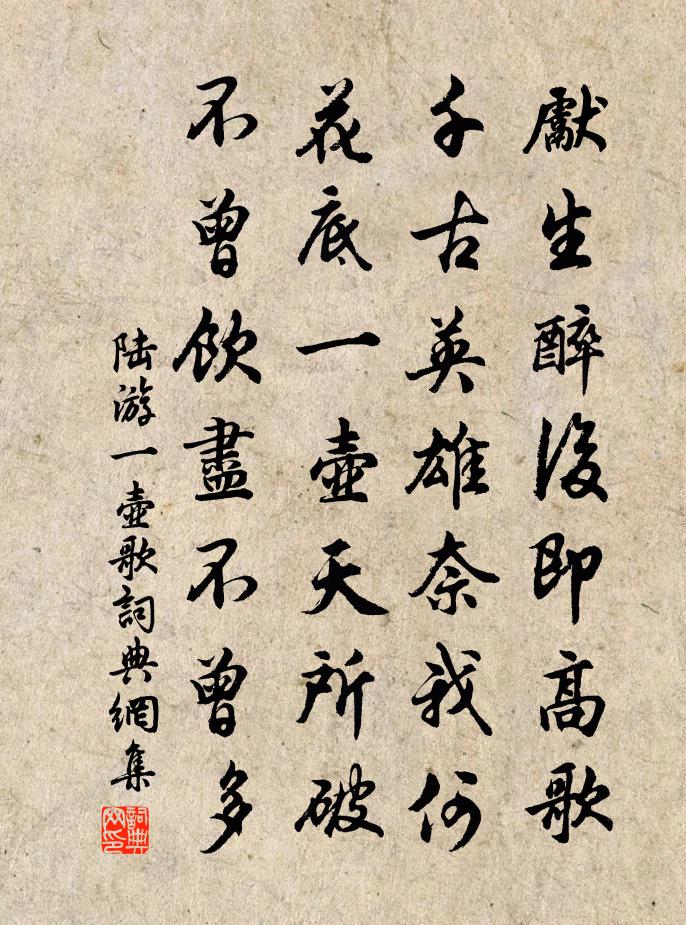 獻生醉後即高歌
千古英雄奈我何
花底一壺天所破
不曾飲盡不曾多
陸游一壺歌詞典網集
詞典
网印